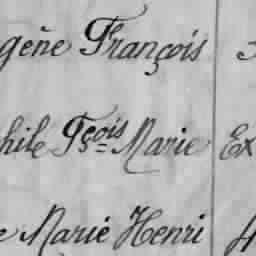 gène François
hile Fçois Marie Ex
e Marie Henri 4